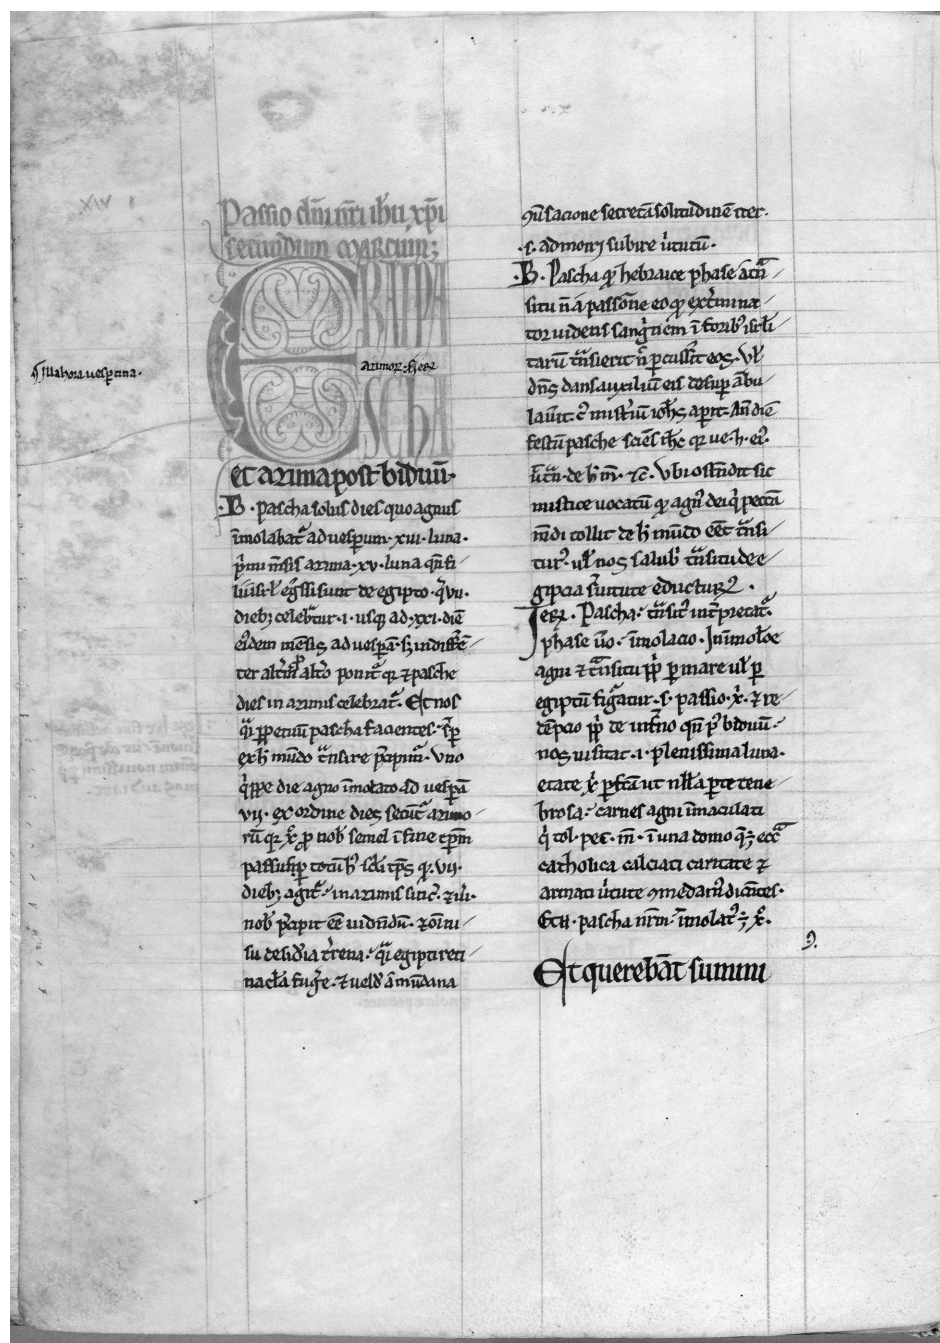 Passio dñi nr̃i ihũ xp̃i
secundum marcum;
ERAT PA
SCHA
⁋ Illa hora uespertina.
et azima post biduũ.
.B. pascha solus dies quo agnus
ĩmolabat᷑ ad uesꝑum. xiiii. luna.
p̃mi m̃sis azima. xv. luna qñ fi
lii isr̃l eg̃ssi sunt de egipto. q̃ vii.
dieb; celebr̃tur .i. usq; ad .xxi. diẽ
eiꝰdem mẽsis ad uesꝑã. s; indiffer̃ẽ
ter alt̃m ꝓ alt̃o ponit᷑ qr ⁊ pasche
dies in azimis celebrat᷑. Et nos
ꝑpetuũ pascha facientes. sp̃
ex h̃ mũdo t̃nsire p̃cipim᷑. Uno
q̃ppe die agno ĩmolato ad uesꝑã
vii. ex ordine dies secunt᷑ azimo
rũ qr x̃ ꝓ nob̃ semel ĩ fine tꝑm
passus totũ h̃ sc̃li tp̃s qr .vii.
dieb; agit᷑. in azimis sinc̃. ⁊ ũi.
nob̃ p̃cipit ẽẽ uidñdũ. ⁊ om̃i ni
su desid̃ia t̃rena. egipti reti
nacl̃a fug̃e. ⁊ uelud̃ a mũdana
ꝯũsacione secretã solitudinẽ iter.
.s. admoni subire ũtutũ.
.B. Pascha qꝫ hebraice phase
situ ñ a passõne eo qꝫ ext̃mina
tor uidens sang̃nem ĩ forib; isr̃li
tarũ t̃nsierit ñ ꝑcusserit eos. Ul̃
dñs dans auxiliũ eis desuꝑ ãbu
lauit. cꝰ mist̃iũ ioh̃s aꝑit. An̄ diẽ
festũ pasche sciẽs ih̃c qr ue. h. eiꝰ.
ut t̃. de h̃ m̃. ⁊c̃. Ubi ostñdit sic
mistice uocatũ qꝫ agnꝰ dei q̃ peccã
m̃di tollit de h̃ mũdo ẽẽt t̃nsi
turꝰ. ul̃ nos salub̃ t̃nsitu de e
gipcia s̃uitute educturꝰ.
Ier̃. Pascha. t̃nsitꝰ int̃pretat᷑.
phase ũo. ĩmolacio. In ĩmol̃oe
agni ⁊ t̃nsitu pp̃ ꝑ mare ul̃ ꝑ
egiptũ fig̃atur .s. passio. x̃. ⁊ re
dẽpcio pp̃ de inferno qñ pꝰ biduũ.
nos uisitat .i. plenissima luna.
etate x̃ ꝑfcã ut nll̃a parte tene
brosa. carnes agni ĩmaculati
q̃ tol. pec. m̃. ĩ una domo q̃ ÷ ecc̃a
catholica calciati caritate ⁊
armati ũtute ꝯmedam᷒ dicentes.
Etẽ. pascha nr̃m ĩmolatꝰ ÷ x̃.
Et querebãt summi